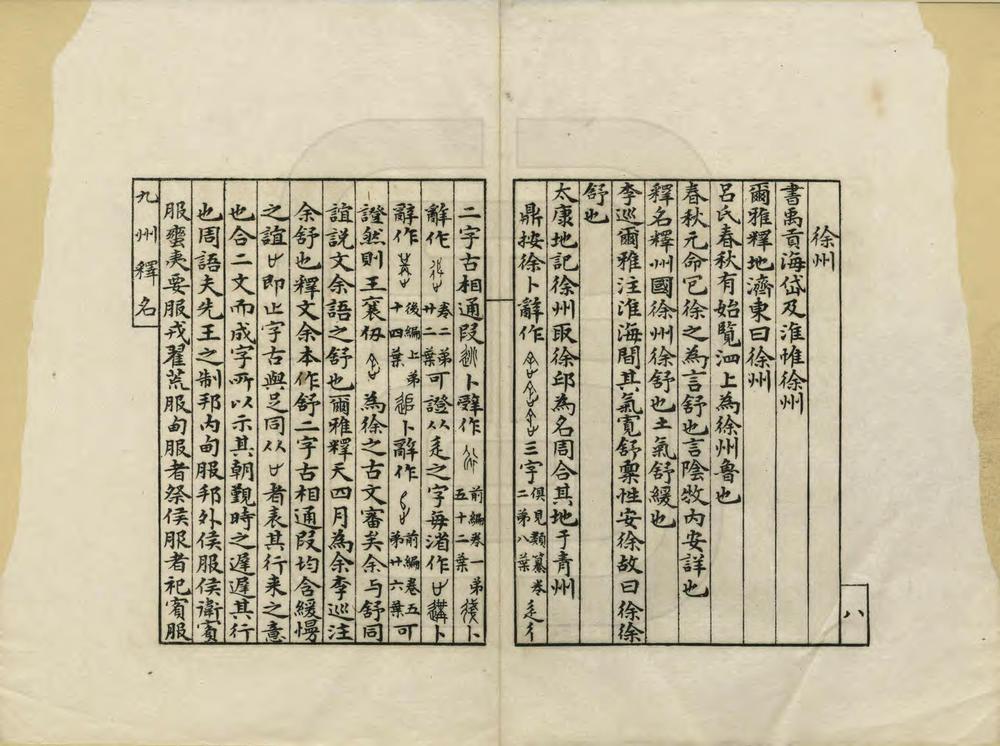 徐州
書禹貢海岱及淮惟徐州
爾雅釋地濟東曰徐州
呂氏春秋有始覽泗上為徐州魯也
春秋元命包徐之為言舒也言陰牧內安詳也
釋名釋州國徐州徐舒也土氣舒緩也
李巡爾雅注淮海間其氣寬舒稟性安徐故曰徐徐
舒也
太康地記徐州取徐邱為名周合其地于青州
鼎按徐卜辭作三字俱見類纂卷二第八葉辵彳
二字古相通叚卜辭作前編卷一第五十二葉後卜
辭作卷二第廿二葉可證从辵之字每渻作遘卜
辭作後編上第十四葉追卜辭作前編卷五第廿六葉可
證然則王襄仞為徐之古文審矣余与舒同
誼說文余語之舒也爾雅釋天四月為余李巡注
余舒也釋文余本作舒二字古相通叚均含緩慢
之誼即止字古與足同从者表其行來之意
也合二文而成字所以示其朝覲時之遲遲其行
也周語夫先王之制邦內甸服邦外侯服侯衛賓
服蠻夷要服戎翟荒服甸服者祭侯服者祀賓服
九州釋名
八